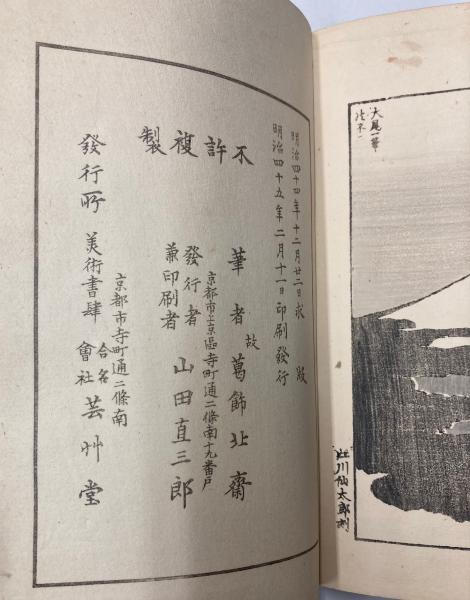 大尾一筆
江川仙太郎刻
明治四十四年十二月廿二日求版
明治四十五年二月十一日印刷發行
不許複製
筆者 故 葛飾北齋
京都市上京區寺町通二條南十九番戸
發行者
兼印刷者
山田直三郎
京都市寺町通二條南
發行所 美術書肆 合名會社 芸艸堂